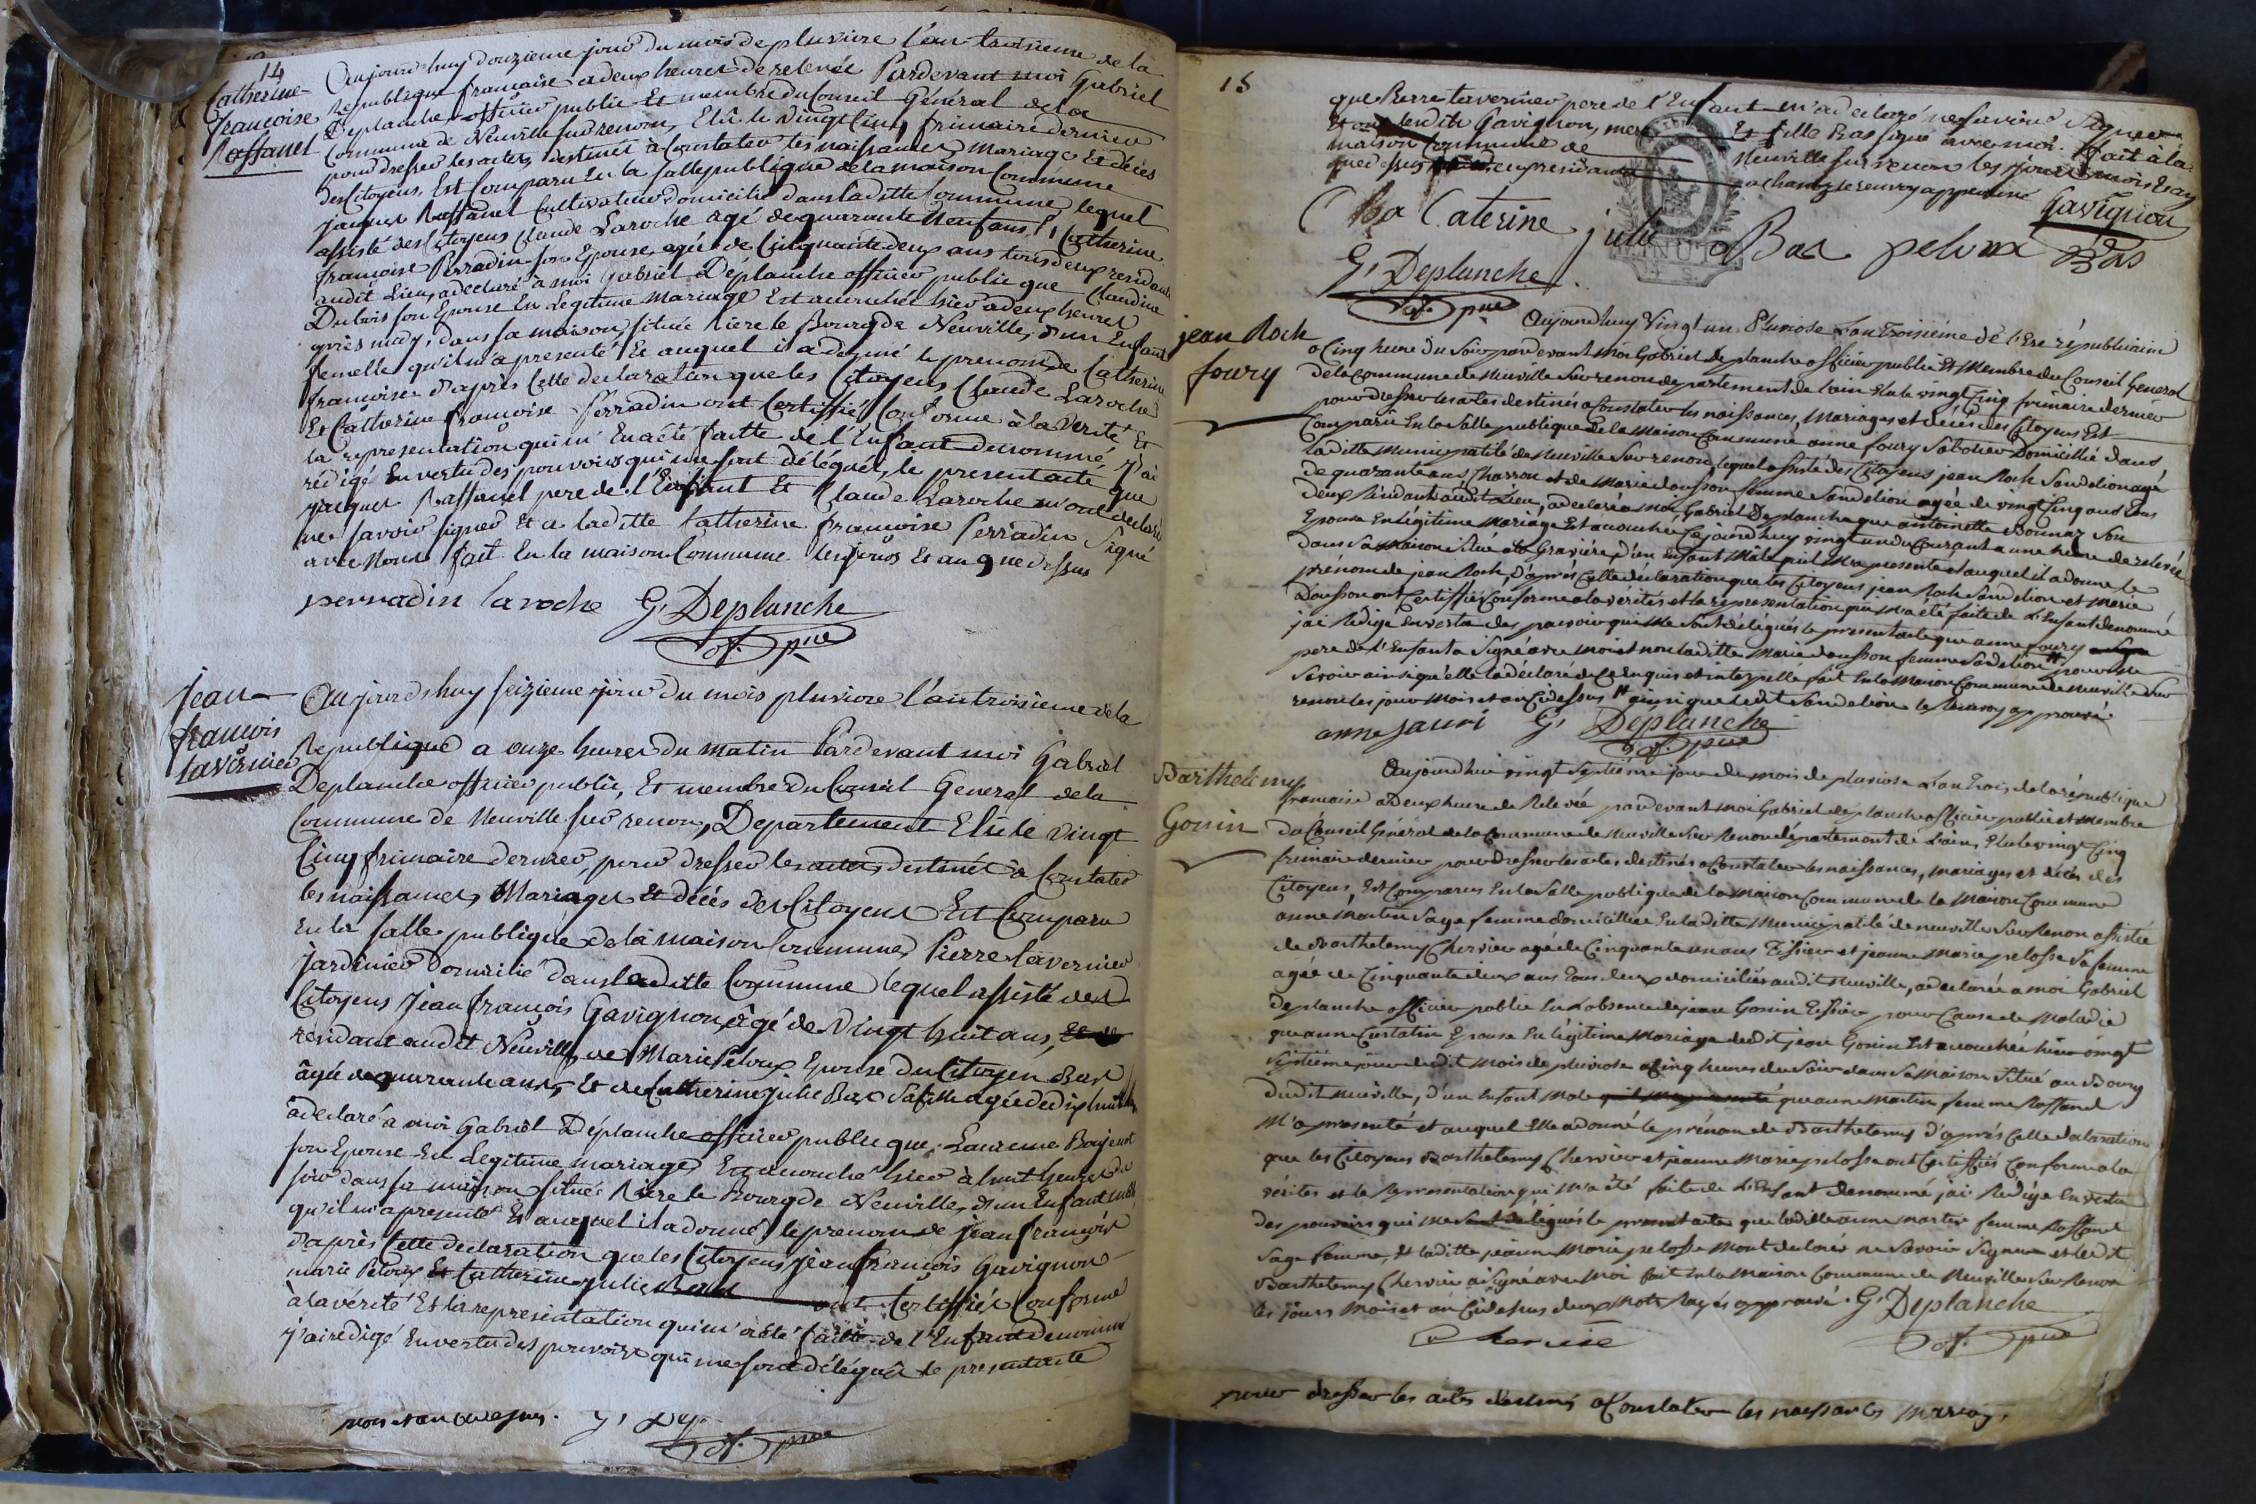 14
Catherine
françoise
Raffanel
Aujourdhuy douzieme jour du mois de pluviose l'an troisieme de la
Republique française a deux heures de relevée Pardevant moi Gabriel
Deplanche officier public Et membre du Conseil Général de la
Commune de Neuville sur renom, Elû le vingt Cinq frimaire dernier
pour dresser les actes destinés à Constater les naissances Mariage Et décés
des Citoyens, Est Comparu En la salle publique de la maison Commune
jacques Raffanel Cultivateur domicilié dans laditte Commune lequel
assisté des Citoyens Claude Laroche agé de quarante Neuf ans, Catherine
françoise Perradin son Epouse, agée de Cinquante deux ans tous deux residants
audit Lieu, a declaré à moi Gabriel Déplanche officier public que Claudine
Dubois son Epouse En Legitime Mariage Est accouchée hier a deux heures
après midy, dans sa maison située Riere le Bourg de Neuville, d'un Enfant
femelle qu'il m'a presenté Et auquel il a donné le prenom de Catherine
françoise d'après Cette declaration que les Citoyens Claude Laroche
Et Catherine françoise Perradin ont Certiffié Conforme à la Verité Et
la representation qui m'En a été faitte de l'Enfant denommé, J'ai
rédigé En vertu des pouvoirs qui me sont délégués, le present acte que
jacques Raffanel pere de l'Enfant Et Claude Laroche m'ont declaré
ne savoir signer Et a laditte Catherine françoise Perradin Signé
avec Nous fait En la maison Commune les jours Et an que dessus
perradin laroche G. Deplanche
of. pue
jean
francois
tavernier
Aujourdhuy seizieme jour du mois pluviose l'an troisieme de la
Republique a onze heures du matin Pardevant moi Gabriel
Deplanche officier public, Et membre du Conseil General de la
Commune de Neuville sur renom, Departement Elû le vingt
Cinq frimaire dernier, pour dresser les actes destinés à Constater
les naissances, Mariages Et décés des Citoyens Est Comparu
En la salle publique de la maison Commune, Pierre tavernier
Jardinier domicilié dans laditte Commune lequel assisté des
Citoyens Jean françois Gavignon, agé de Vingt huit ans, Et de
residant audit Neuville, de Marie Peloux Epouse du Citoyen Bas
âgée de quarante ans, Et de Catherine Julie Bas Sa fille agée de dix huit ans
a declaré à moi Gabriel Déplanche officier public que Laurence Bajenot
son Epouse En Legitime mariage, Est accouchée hier à huit heures du
soir dans sa maison située Riere le Bourg de Neuville, d'un Enfant mâle
qu'il m'a presenté Et auquel il a donné le prenom de jean françois
d'après Cette declaration que les Citoyens jean françois Gavignon
marie Peloux Et Catherine Julie Bas ont Certiffiés Conforme
à la vérité Et la representation qui m'a été faitte de l'Enfant denommé
j'ai rédigé En vertu des pouvoirs qui me sont délégués le present acte
15
que Pierre tavernier pere de l'Enfant m'a declaré ne savoir signer
Et ont lesdits Gavignon, mere Et fille Bas signé avec moi. fait à la
maison Commune de Neuville sur renom les jour mois Et an
que dessus renvoy approuvé
Gavignon
Caterine julie Bas peloux Bas
G. Deplanche
of. pue
jean Roch
foury
Aujourdhuy Vingt un Pluviose L'an Troisieme de l'Ere républicaine
a Cinq heure du Soir pardevant moi Gabriel Deplanche officier public Et Membre du Conseil General
de la Commune de Neuville sur renon departement de l'ain Elu le vingt Cinq frimaire dernier
pour dresser les actes destinés a Constater les naissances, Mariages et décés des Citoyens Est
Comparû En la Salle publique de la Maison Commune anne foury Sabotier Domicillié dans
laditte Municipalité de Neuville Sur renon, lequel assisté des Citoyens jean Roch Sandelion agé
de quarante ans, Charron et de Marie dousson femme Sandelion agée de vingt Cinq ans tous
deux Residants audit Lieu, a declaré a moi Gabriel Deplanche que antoinette Bonnaz Son
Epouse En Légitime Mariage Est accouchée Ce jourd'huy vingt un du Courant a une heure de relevée
dans Sa Maison Située a la Graviere d'un Enfant Mâle qu'il m'a presenté et auquel il a donné le
prénom de jean Roch, d'après Cette déclaration que les Citoyens jean Roch Sandelion et Marie
Dousson ont Certiffiés Conforme a la vérité et la representation qui m'a été faite de l'Enfant denommé
j'ai Rédigé En vertu des pouvoirs qui me Sont délégués le present acte que anne foury
pere de l'Enfant a Signé avec moi et non laditte Marie dousson femme Sandelion # pour ne
Savoir ainsi qu'elle l'a déclaré de Ce Enquis et interpellé fait En la Maison Commune de Neuville Sur
renon les jour Mois et an Cidessus # ainsi que ledit Sandelion le Renvoy approuvé
anne jauri G. Deplanche
of. pue
Barthelemy
Gonin
Aujourdhui vingt Septiéme jour du mois de pluviose L'an trois de la république
francaise a Deux heure de Relevée pardevant moi Gabriel deplanche officier public et Membre
du Conseil Général de la Commune de Neuville Sur Renon département de L'ain, Elu le vingt Cinq
frimaire dernier pour Dresser les actes destinés a Constater les naissances, mariages et décés des
Citoyens, Est Comparus En la Salle publique de la Maison Commune de la Maison Commune
anne Martin Sage femme domicilliée En laditte Municipalité de neuville Sur Renon assistée
de Barthelemy Chervier agé de Cinquante un ans Tessier et jeanne Marie pelosse Sa femme
agée de Cinquante deux ans tous deux domiciliés audit Neuville, a declarée a moi Gabriel
deplanche officier public En L'absence de jean Gonin Tessier pour Cause de Maladie
que anne Curtatin Epouse En légitime Mariage dudit jean Gonin Est accouchée hier vingt
Sixtiéme jour dudit Mois de pluviose a Cinq heures du Soir dans Sa Maison Situé au Bourg
dudit Neuville, d'un Enfant Mâle que anne Martin femme Raffanel
M'a presenté et auquel Elle a donné le prénom de Barthelemy d'après Cette declaration
que les Citoyens Barthelemy Chervier et jeanne Marie pelosse ont Certiffiés Conforme a la
vérité et la Representation qui m'a été faite de L'Enfant denommé j'ai Rédigé En vertu
des pouvoirs qui me Sont délégués le present acte que laditte anne Martin femme Raffanel
Sage femme, Et laditte jeanne Marie pelosse Mont declarés ne Savoir Signer et ledit
Barthelemy Chervier a Signé avec Moi fait En la Maison Commune de Neuville Sur Renon
les jours Mois et an Cidessus deux Mots Rayés approuvé. G. Deplanche
Chervié
of. pue
mois et an que dessus. G. D
of. pue
pour dresser les actes destinés a Constater les naissances mariages